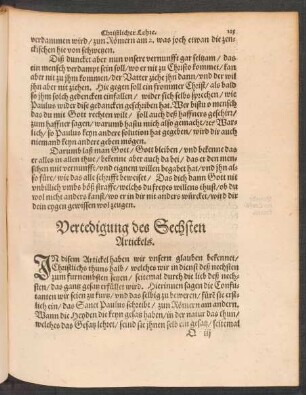 Christlicher Lehre. 125
verdammen wird / zun Römern am 2. was joch etwan die zen-
ckischen hie von schweygen.
Diß duncket aber nun vnsere vernunfft gar seltzam / das
ein mensch verdampt sein soll / wo er nit zu Christo kommet / kan
aber nit zu jhm kummen / der Vatter ziehe jhn dann / vnd der wil
jhn aber nit ziehen. Hie gegen soll ein frommer Christ / als bald
so jhm solch gedencken einfallen / wider sich selbs sprechen / wie
Paulus wider dise gedancken geschriben hat. Wer bistu o mensch
das du mit Gott rechten wilt / soll auch deß haffners geschirr /
zum haffner sagen / warumb hastu mich also gemacht /
so Paulus keyn andere solution hat gegeben / wird dir auch
niemand keyn andere geben mögen.
Darumb laß man Gott / Gott bleiben / vnd bekenne das
er alles in allen thue / bekenne aber auch da bei / das er den men-
schen mit vernunfft / vnd eignem willen begabet hat / vnd jhn al-
so füre / wie das alle schrifft beweiset / Das dich dann Gott nit
vnbillich vmbs böß straffe / welchs du freyes willens thust / ob du
wol nicht anders kanst / wo er in dir nit anders würcket / wird dir
dein eygen gewissen wol zeugen.
Veredigung des Sechsten
Artickels.
IN disem Artickel haben wir vnsern glauben bekennet /
Christlichs thuns halb / welches wir in dienst deß nechsten
zum furnemsten setzen / seitemal durch die lieb deß nech-
sten / das gantz gesatz erfüllet wird. Hierinnen sagen die Confu-
tanten wir seien zu kurtz / vnd das selbig zu beweren / fürē sie erst-
lich ein / das Sanct Paulus schreibt / zun Römern am andern,
Wann die Heyden die keyn gesatz haben / in der natur das thun /
welches das Gesatz lehret / seind sie jhnen selb ein gesatz / seitemal
Q iij